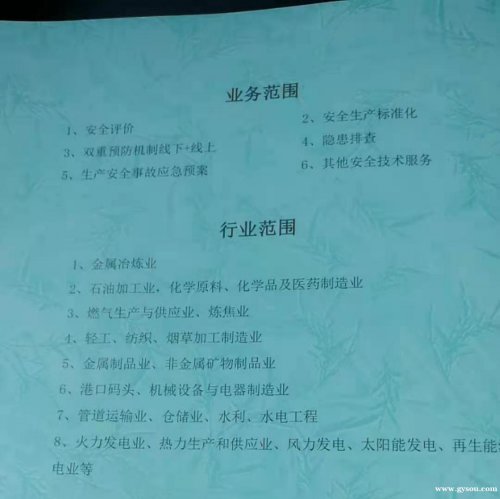 业务范围
1、安全评价
2、安全生产标准化
3、双重预防机制线下+线上
4、隐患排查
5、生产安全事故应急预案
6、其他安全技术服务
行业范围
1、金属冶炼业
2、石油加工业，化学原料、化学品及医药制造业
3、燃气生产与供应业、炼焦业
4、轻工、纺织、烟草加工制造业
5、金属制品业、非金属矿物制品业
6、港口码头、机械设备与电器制造业
7、管道运输业、仓储业、水利、水电工程
8、火力发电业、热力生产和供应业、风力发电、太阳能发电、再生能
电业等
www.gysou.com